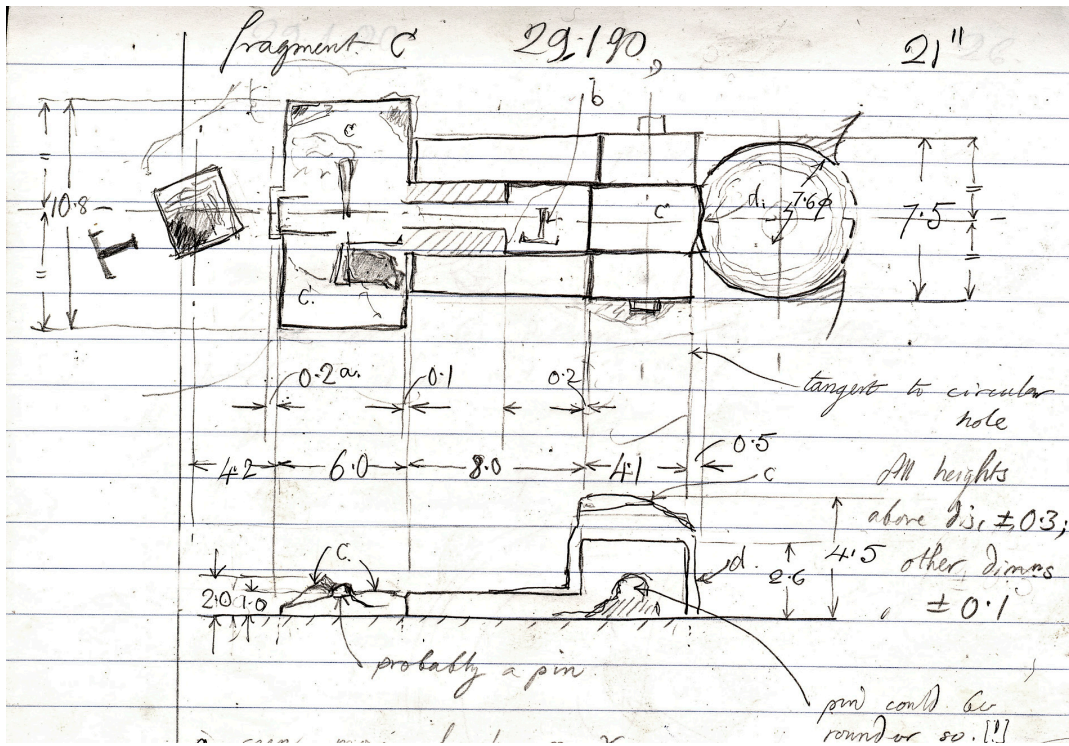 fragment C 29·190, 21"
b
c
10.8
=
=
d. 7.6ϕ
c
7.5
=
=
c.
0·2 a. 0·1 0·2
tangent to circular
hole
0·5
4·2 6·0 8·0 4·1
c
All heights
above disc ±0·3;
other dimns
±0·1
c.
d.
2·6
4·5
2·0 1·0
probably a pin
pin could be
round or so. [!]